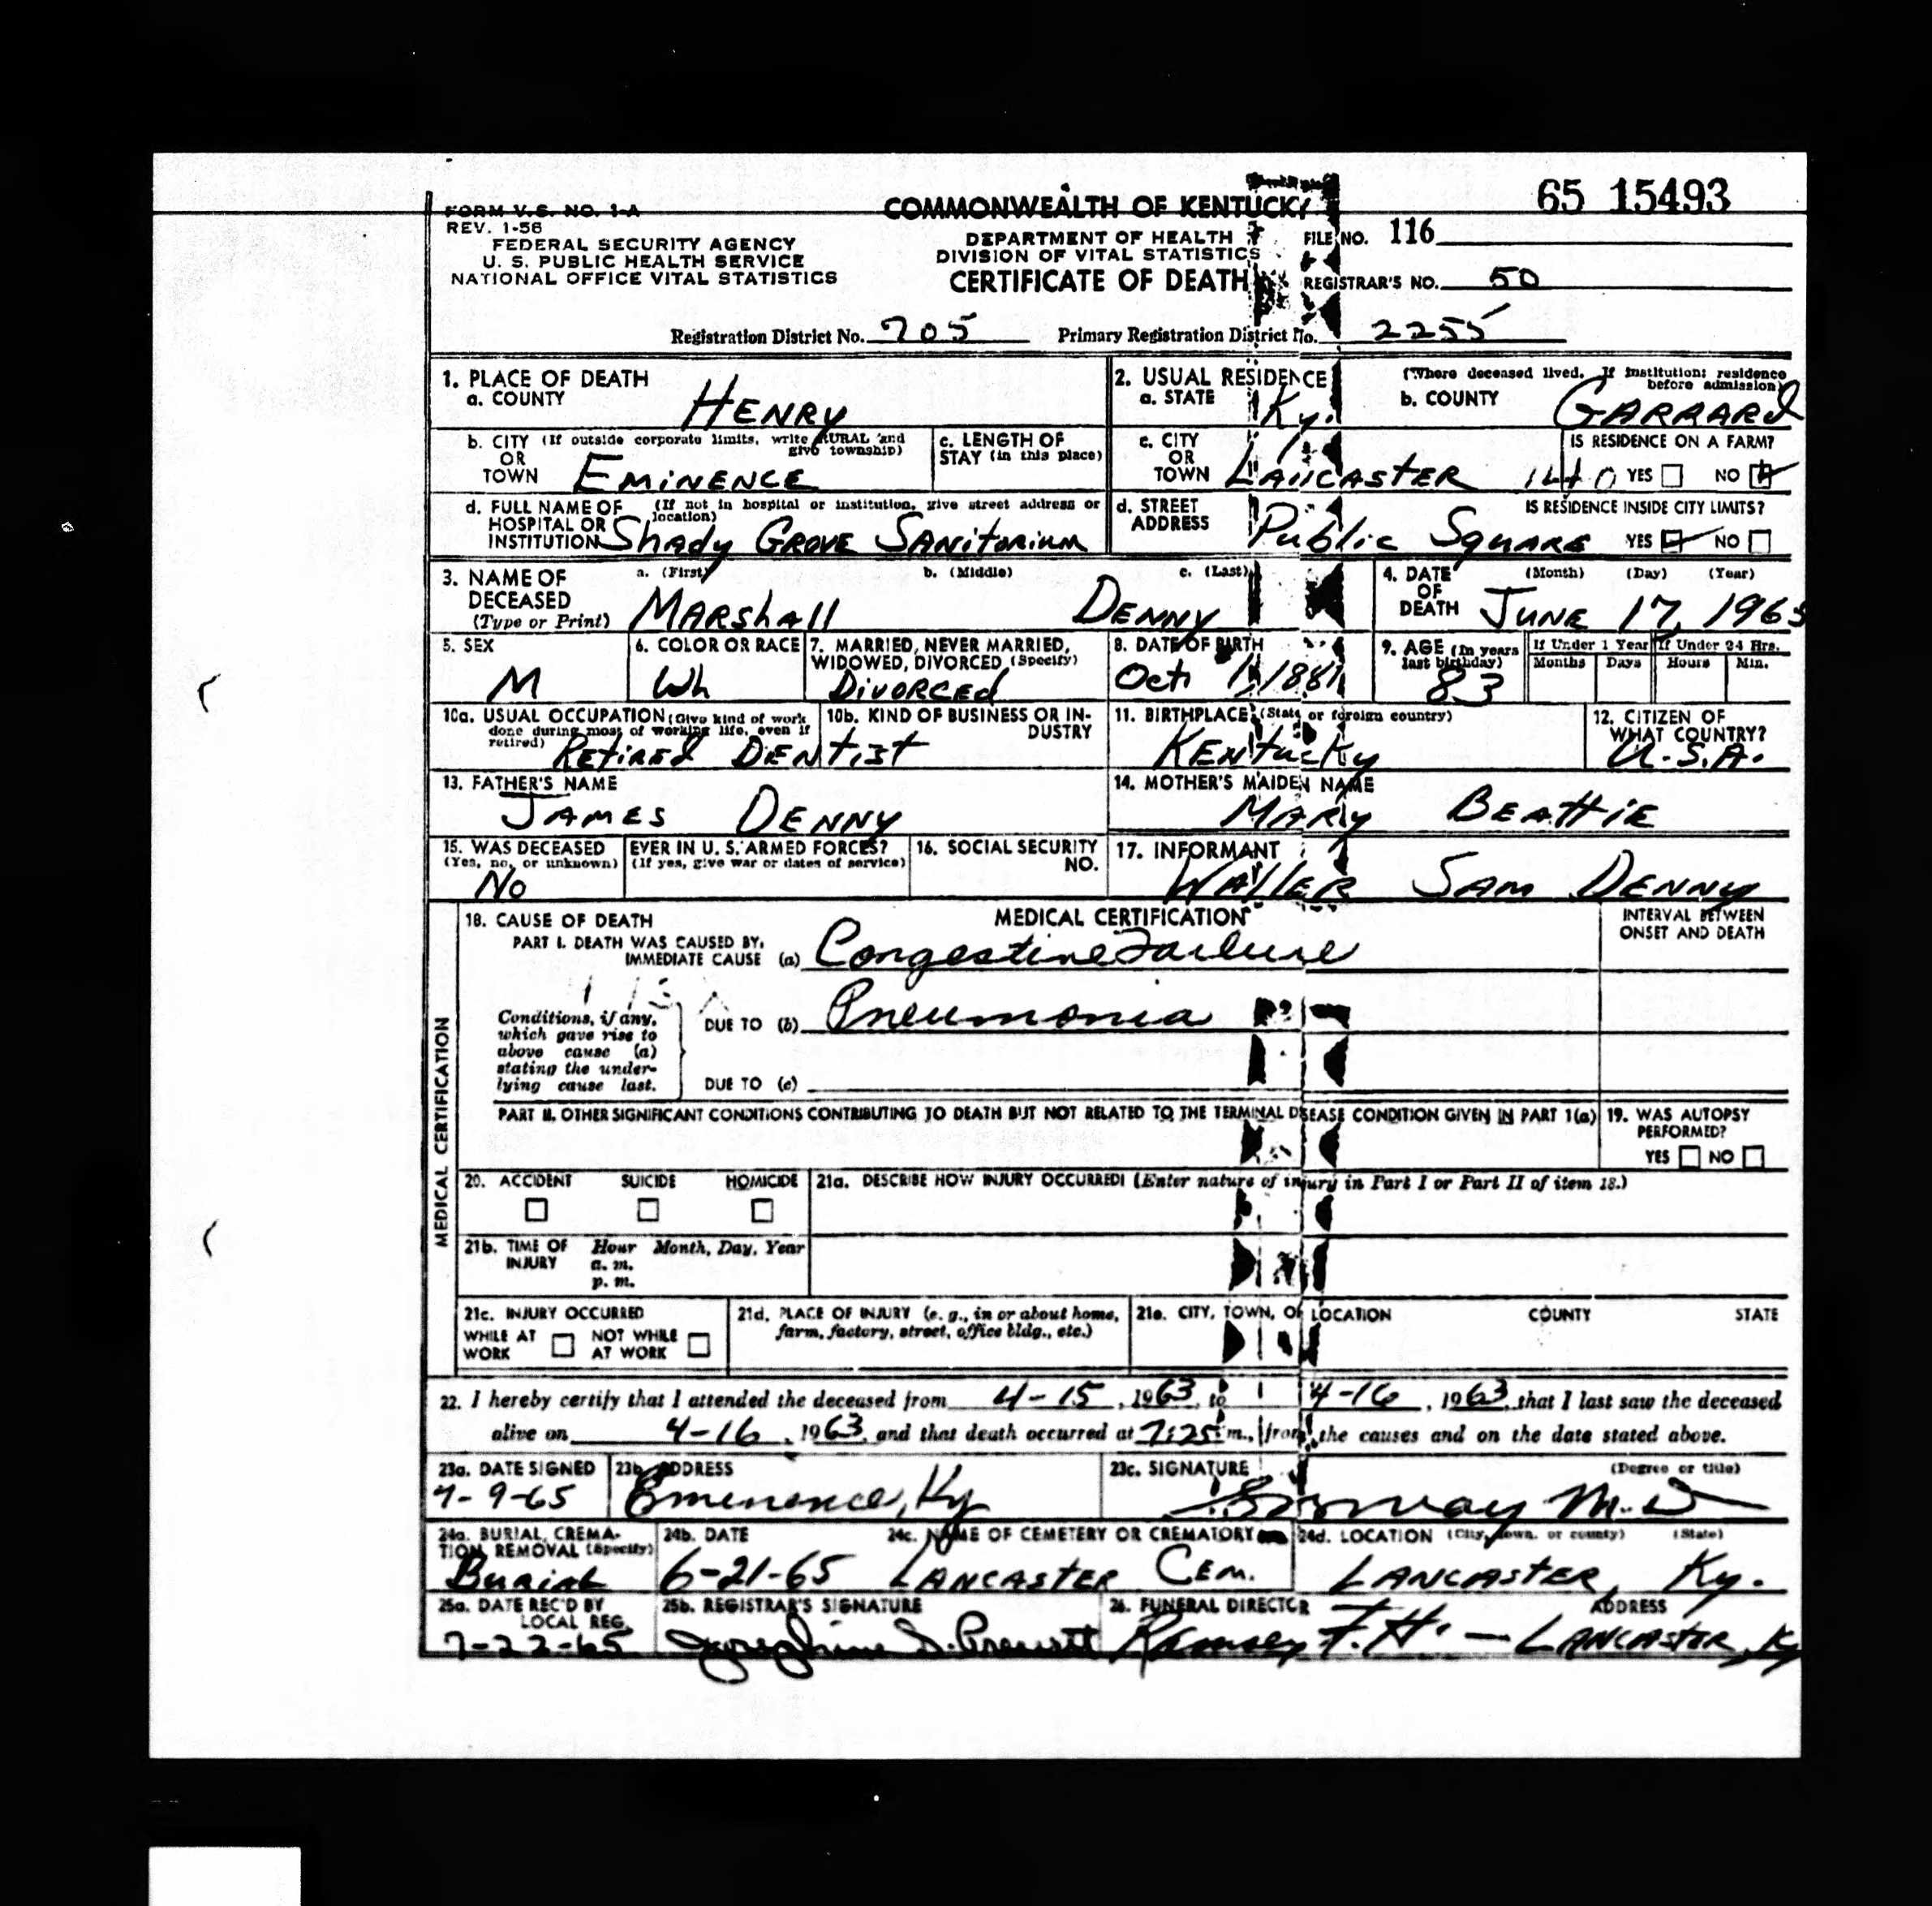 65 15493
FORM V.S. NO. 1-A
REV. 1-56
FEDERAL SECURITY AGENCY
U. S. PUBLIC HEALTH SERVICE
NATIONAL OFFICE VITAL STATISTICS
COMMONWEALTH OF KENTUCKY
DEPARTMENT OF HEALTH
DIVISION OF VITAL STATISTICS
CERTIFICATE OF DEATH
FILE NO. 116
REGISTRAR'S NO. 50
Registration District No. 705 Primary Registration District No. 2255
1. PLACE OF DEATH
a. COUNTY HENRY
2. USUAL RESIDENCE (Where deceased lived. If institution: residence before admission)
a. STATE Ky. b. COUNTY GARRARD
b. CITY (If outside corporate limits, write RURAL and give township)
OR
TOWN EMINENCE
c. LENGTH OF STAY (in this place)
c. CITY
OR
TOWN LANCASTER 140
IS RESIDENCE ON A FARM?
YES NO
d. FULL NAME OF (If not in hospital or institution, give street address or location)
HOSPITAL OR
INSTITUTION Shady GROVE SANitorium
d. STREET
ADDRESS Public SquARE
IS RESIDENCE INSIDE CITY LIMITS?
YES NO
3. NAME OF
DECEASED
(Type or Print)
a. (First) b. (Middle) c. (Last)
MARShAll DENNY
4. DATE
OF
DEATH
(Month) (Day) (Year)
JUNE 17, 1965
5. SEX
M
6. COLOR OR RACE
Wh
7. MARRIED, NEVER MARRIED,
WIDOWED, DIVORCED (Specify)
DIVORCEd
8. DATE OF BIRTH
Oct. 1, 1881
9. AGE (In years last birthday)
83
If Under 1 Year If Under 24 Hrs.
Months Days Hours Min.
10a. USUAL OCCUPATION (Give kind of work done during most of working life, even if retired)
REtiREd DENtIST
10b. KIND OF BUSINESS OR INDUSTRY
11. BIRTHPLACE (State or foreign country)
KENtucKy
12. CITIZEN OF
WHAT COUNTRY?
U.S.A.
13. FATHER'S NAME
JAMES DENNY
14. MOTHER'S MAIDEN NAME
MARY BEAttIE
15. WAS DECEASED EVER IN U. S. ARMED FORCES?
(Yes, no, or unknown) (If yes, give war or dates of service)
No
16. SOCIAL SECURITY
NO.
17. INFORMANT
WAllER SAM DENNY
MEDICAL CERTIFICATION
18. CAUSE OF DEATH
MEDICAL CERTIFICATION
INTERVAL BETWEEN
ONSET AND DEATH
PART I. DEATH WAS CAUSED BY:
IMMEDIATE CAUSE (a) Congestive Failure
Conditions, if any,
which gave rise to
above cause (a)
stating the under-
lying cause last.
DUE TO (b) Pneumonia
DUE TO (c)
PART II. OTHER SIGNIFICANT CONDITIONS CONTRIBUTING TO DEATH BUT NOT RELATED TO THE TERMINAL DISEASE CONDITION GIVEN IN PART 1(a)
19. WAS AUTOPSY
PERFORMED?
YES NO
20. ACCIDENT SUICIDE HOMICIDE
21a. DESCRIBE HOW INJURY OCCURRED! (Enter nature of injury in Part I or Part II of item 18.)
21b. TIME OF INJURY Hour Month, Day, Year
a. m.
p. m.
21c. INJURY OCCURRED
WHILE AT WORK NOT WHILE AT WORK
21d. PLACE OF INJURY (e. g., in or about home,
farm, factory, street, office bldg., etc.)
21e. CITY, TOWN, OR LOCATION COUNTY STATE
22. I hereby certify that I attended the deceased from 4-15, 1963, to 4-16, 1963, that I last saw the deceased
alive on 4-16, 1963, and that death occurred at 7:25 m., from the causes and on the date stated above.
23a. DATE SIGNED
7-9-65
23b. ADDRESS
Eminence, Ky
23c. SIGNATURE (Degree or title)
M.D
24a. BURIAL, CREMA-
TION, REMOVAL (Specify)
Burial
24b. DATE
6-21-65
24c. NAME OF CEMETERY OR CREMATORY
LANCASTER CEM.
24d. LOCATION (City, town, or county) (State)
LANCASTER, Ky.
25a. DATE REC'D BY
LOCAL REG.
7-22-65
25b. REGISTRAR'S SIGNATURE
Josephine S. Prewitt
26. FUNERAL DIRECTOR ADDRESS
Ramsey F. H. - LANCASTER, Ky